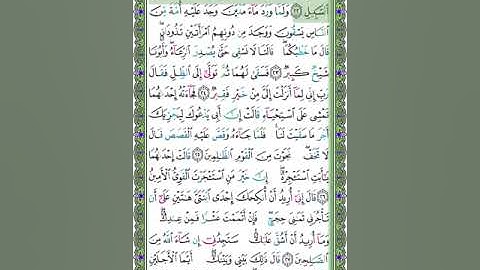 ٱلسَّبِيلِ ٢٢ وَلَمَّا وَرَدَ مَآءَ مَدْيَنَ وَجَدَ عَلَيْهِ أُمَّةً مِّنَ
ٱلنَّاسِ يَسْقُونَ وَوَجَدَ مِن دُونِهِمُ ٱمْرَأَتَيْنِ تَذُودَانِ
قَالَ مَا خَطْبُكُمَا قَالَتَا لَا نَسْقِى حَتَّىٰ يُصْدِرَ ٱلرِّعَآءُ وَأَبُونَا
شَيْخٌ كَبِيرٌ ٢٣ فَسَقَىٰ لَهُمَا ثُمَّ تَوَلَّىٰٓ إِلَى ٱلظِّلِّ فَقَالَ
رَبِّ إِنِّى لِمَآ أَنزَلْتَ إِلَىَّ مِنْ خَيْرٍ فَقِيرٌ ٢٤ فَجَآءَتْهُ إِحْدَىٰهُمَا
تَمْشِى عَلَى ٱسْتِحْيَآءٍ قَالَتْ إِنَّ أَبِى يَدْعُوكَ لِيَجْزِيَكَ
أَجْرَ مَا سَقَيْتَ لَنَا فَلَمَّا جَآءَهُۥ وَقَصَّ عَلَيْهِ ٱلْقَصَصَ قَالَ
لَا تَخَفْ نَجَوْتَ مِنَ ٱلْقَوْمِ ٱلظَّٰلِمِينَ ٢٥ قَالَتْ إِحْدَىٰهُمَا
يَٰٓأَبَتِ ٱسْتَـْٔجِرْهُ إِنَّ خَيْرَ مَنِ ٱسْتَـْٔجَرْتَ ٱلْقَوِىُّ ٱلْأَمِينُ
٢٦ قَالَ إِنِّىٓ أُرِيدُ أَنْ أُنكِحَكَ إِحْدَى ٱبْنَتَىَّ هَٰتَيْنِ عَلَىٰٓ أَن
تَأْجُرَنِى ثَمَٰنِىَ حِجَجٍ فَإِنْ أَتْمَمْتَ عَشْرًا فَمِنْ عِندِكَ
وَمَآ أُرِيدُ أَنْ أَشُقَّ عَلَيْكَ سَتَجِدُنِىٓ إِن شَآءَ ٱللَّهُ مِنَ
ٱلصَّٰلِحِينَ ٢٧ قَالَ ذَٰلِكَ بَيْنِى وَبَيْنَكَ أَيَّمَا ٱلْأَجَلَيْنِ